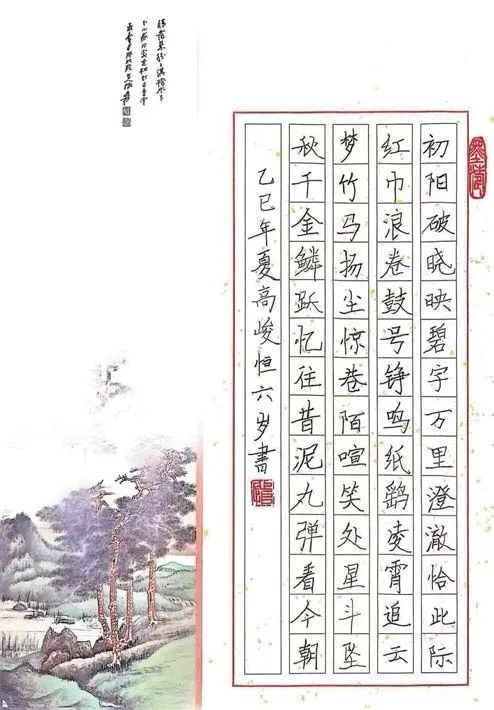 初阳破晓映碧字万里澄澈恰此际
红巾浪卷鼓号铮鸣纸鹞凌霄追云
梦竹马扬尘惊巷陌喧笑处星斗坠
秋千金鳞跃忆往昔泥丸弹看今朝
乙巳年夏高峻恒六岁书